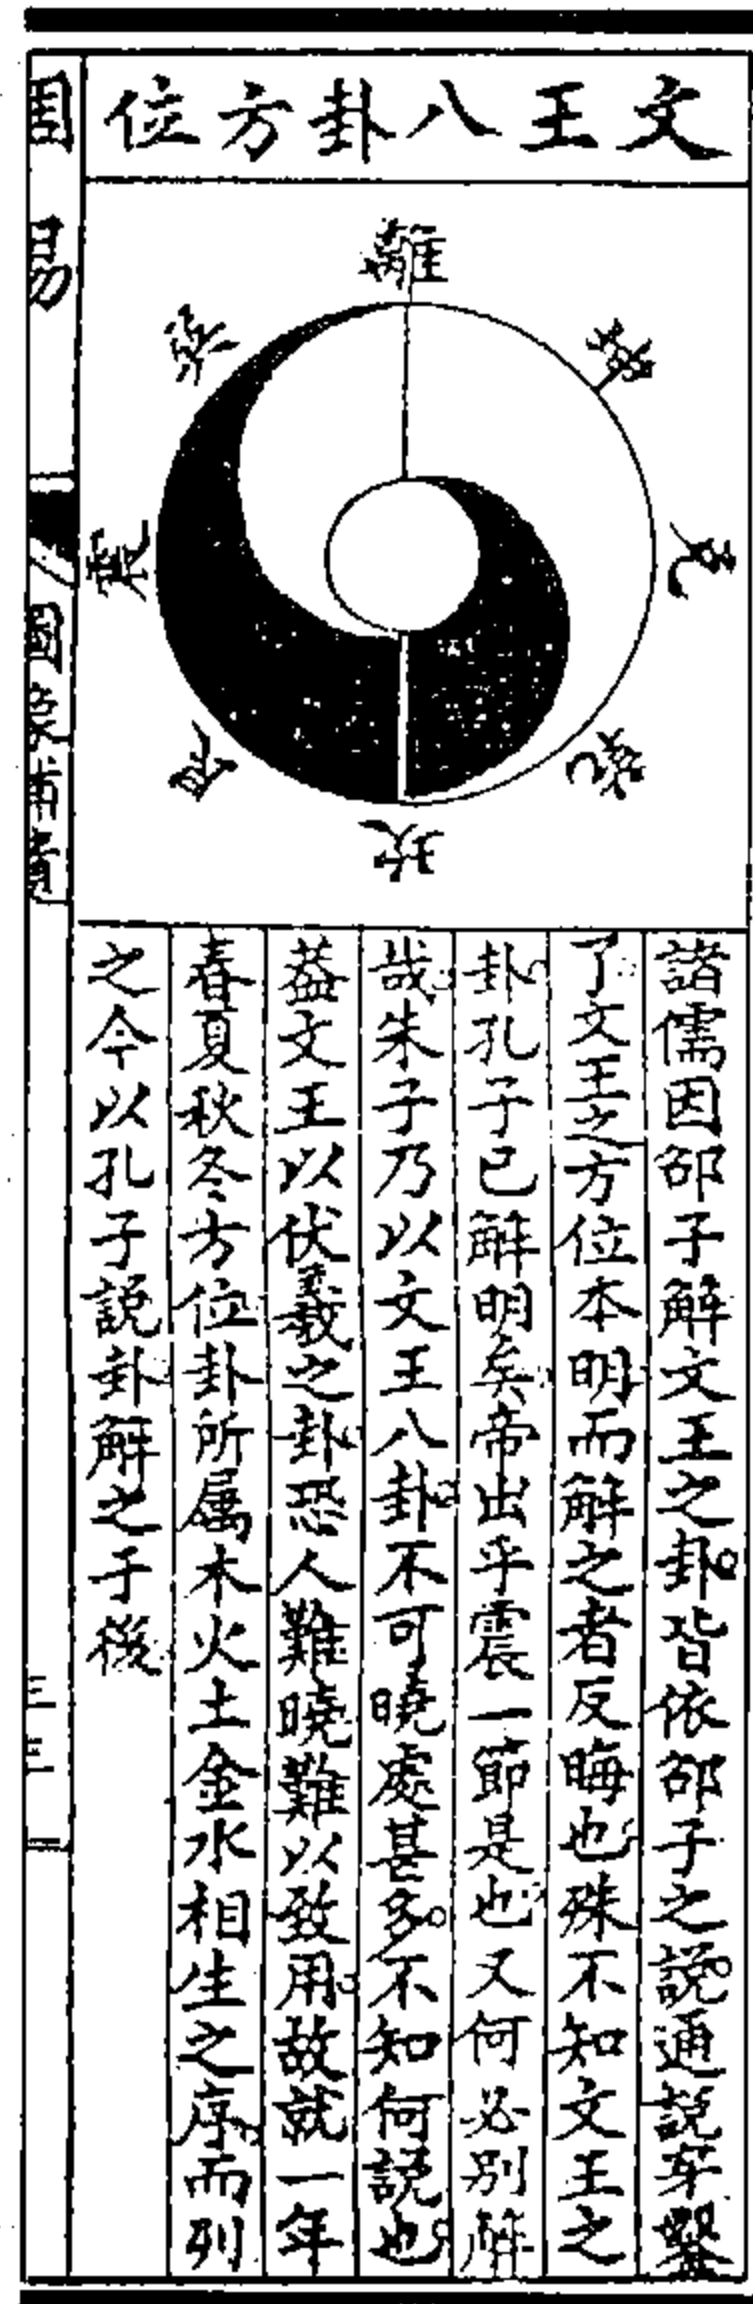 文王八卦方位
離
坤
兌
乾
坎
艮
震
巽
諸儒因邵子解文王之卦皆依邵子之說通說穿鑿
了文王之方位本明而解之者反晦也殊不知文王之
卦孔子已解明矣帝出乎震一節是也又何必別解
哉朱子乃以文王八卦不可曉處甚多不知何說也
葢文王以伏羲之卦恐人難曉難以致用故就一年
春夏秋冬方位卦所属木火土金水相生之序而列
之今以孔子説卦解之于後
周易
圖象補遺
三三